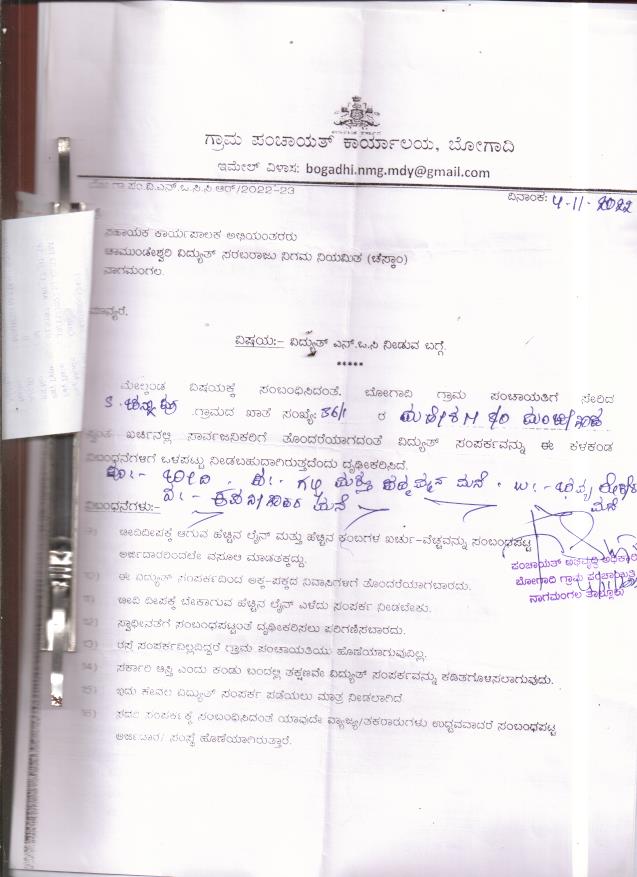 ಗ್ರಾಮ ಪಂಚಾಯತ್ ಕಾರ್ಯಾಲಯ, ಬೋಗಾದಿ
ಇಮೇಲ್ ವಿಳಾಸ: bogadhi.nmg.mdy@gmail.com
ಬೋ.ಗ್ರಾ.ಪಂ.ವಿ.ಎನ್.ಒ.ಸಿ.ಸಿ ಆರ್/2022-23
ದಿನಾಂಕ: 4-11-2022
ಸಹಾಯಕ ಕಾರ್ಯಪಾಲಕ ಅಭಿಯಂತರರು
ಚಾಮುಂಡೇಶ್ವರಿ ವಿದ್ಯುತ್ ಸರಬರಾಜು ನಿಗಮ ನಿಯಮಿತ (ಚೆಸ್ಕಾಂ)
ನಾಗಮಂಗಲ.
ಮಾನ್ಯರೆ,
ವಿಷಯ:- ವಿದ್ಯುತ್ ಎನ್.ಒ.ಸಿ ನೀಡುವ ಬಗ್ಗೆ.
*****
ಮೇಲ್ಕಂಡ ವಿಷಯಕ್ಕೆ ಸಂಬಂಧಿಸಿದಂತೆ. ಬೋಗಾದಿ ಗ್ರಾಮ ಪಂಚಾಯತಿಗೆ ಸೇರಿದ
ಗ್ರಾಮದ ಖಾತೆ ಸಂಖ್ಯೆ: 36/1 ರ
ಸ್ವಂತ ಖರ್ಚಿನಲ್ಲಿ ಸಾರ್ವಜನಿಕರಿಗೆ ತೊಂದರೆಯಾಗದಂತೆ ವಿದ್ಯುತ್ ಸಂಪರ್ಕವನ್ನು ಈ ಕೆಳಕಂಡ
ನಿಬಂಧನೆಗಳಿಗೆ ಒಳಪಟ್ಟು ನೀಡಬಹುದಾಗಿರುತ್ತದೆಂದು ದೃಢೀಕರಿಸಿದೆ.
ನಿಬಂಧನೆಗಳು:-
ಬೀದಿದೀಪಕ್ಕೆ ಆಗುವ ಹೆಚ್ಚಿನ ಲೈನ್ ಮತ್ತು ಹೆಚ್ಚಿನ ಕಂಬಗಳ ಖರ್ಚು-ವೆಚ್ಚವನ್ನು ಸಂಬಂಧಪಟ್ಟ
ಅರ್ಜಿದಾರರಿಂದಲೇ ವಸೂಲಿ ಮಾಡತಕ್ಕದ್ದು.
ಪಂಚಾಯತ್ ಅಭಿವೃದ್ಧಿ ಅಧಿಕಾರಿ
ಬೋಗಾದಿ ಗ್ರಾಮ ಪಂಚಾಯಿತಿ
ನಾಗಮಂಗಲ ತಾಲ್ಲೂಕು
10) ಈ ವಿದ್ಯುತ್ ಸಂಪರ್ಕದಿಂದ ಅಕ್ಕ-ಪಕ್ಕದ ನಿವಾಸಿಗಳಿಗೆ ತೊಂದರೆಯಾಗಬಾರದು.
11) ಬೀದಿ ದೀಪಕ್ಕೆ ಬೇಕಾಗುವ ಹೆಚ್ಚಿನ ಲೈನ್ ಎಳೆದು ಸಂಪರ್ಕ ನೀಡಬೇಕು.
12) ಸ್ವಾಧೀನತೆಗೆ ಸಂಬಂಧಪಟ್ಟಂತೆ ದೃಢೀಕರಿಸಲು ಪರಿಗಣಿಸಬಾರದು.
13) ರಸ್ತೆ ಸಂಪರ್ಕವಿಲ್ಲವಿದ್ದರೆ ಗ್ರಾಮ ಪಂಚಾಯತಿಯು ಹೊಣೆಯಾಗುವುದಿಲ್ಲ.
14) ಸರ್ಕಾರಿ ಆಸ್ತಿ ಎಂದು ಕಂಡು ಬಂದಲ್ಲಿ ತಕ್ಷಣವೇ ವಿದ್ಯುತ್ ಸಂಪರ್ಕವನ್ನು ಕಡಿತಗೊಳಿಸಲಾಗುವುದು.
15) ಇದು ಕೇವಲ ವಿದ್ಯುತ್ ಸಂಪರ್ಕ ಪಡೆಯಲು ಮಾತ್ರ ನೀಡಲಾಗಿದೆ.
16) ಸದರಿ ಸಂಪರ್ಕಕ್ಕೆ ಸಂಬಂಧಿಸಿದಂತೆ ಯಾವುದೇ ವ್ಯಾಜ್ಯ/ತಕರಾರುಗಳು ಉದ್ಭವವಾದರೆ ಸಂಬಂಧಪಟ್ಟ
ಅರ್ಜಿದಾರ/ ಸಂಸ್ಥೆ ಹೊಣೆಯಾಗಿರುತ್ತಾರೆ.